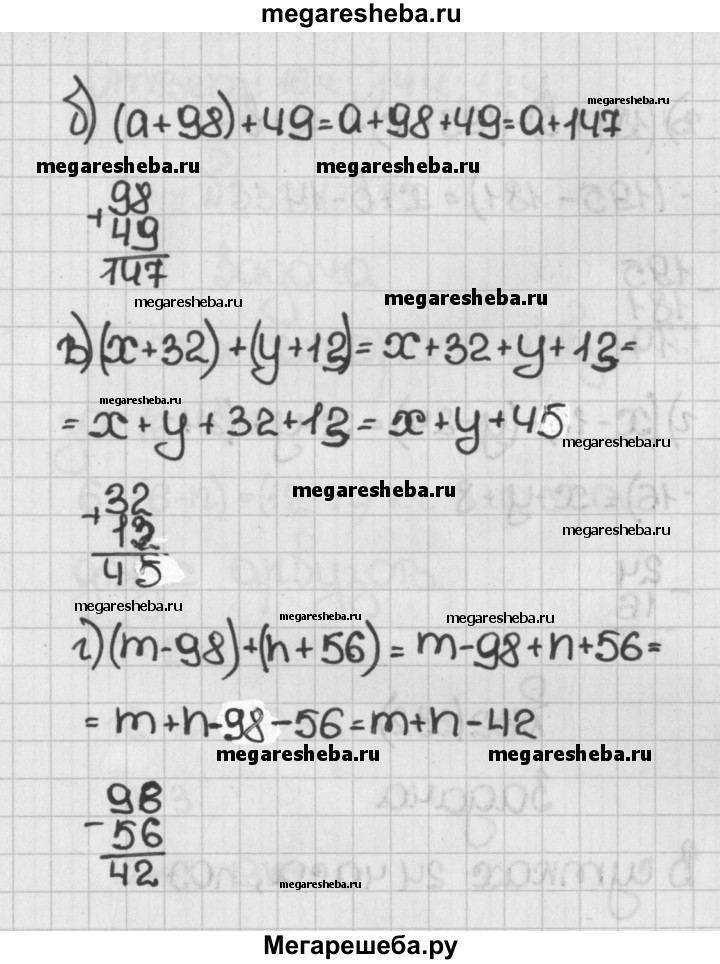 megaresheba.ru
megaresheba.ru
б) (a+98)+49=a+98+49=a+147
megaresheba.ru megaresheba.ru
+98
49
147
megaresheba.ru megaresheba.ru
в) (x+32)+(y+13)=x+32+y+13=
megaresheba.ru
=x+y+32+13=x+y+45
megaresheba.ru
megaresheba.ru
+32
13
45
megaresheba.ru
megaresheba.ru megaresheba.ru megaresheba.ru
г) (m-98)+(n+56)=m-98+n+56=
=m+n-98-56=m+n-42
megaresheba.ru megaresheba.ru
-98
56
42
megaresheba.ru
Мегарешеба.ру